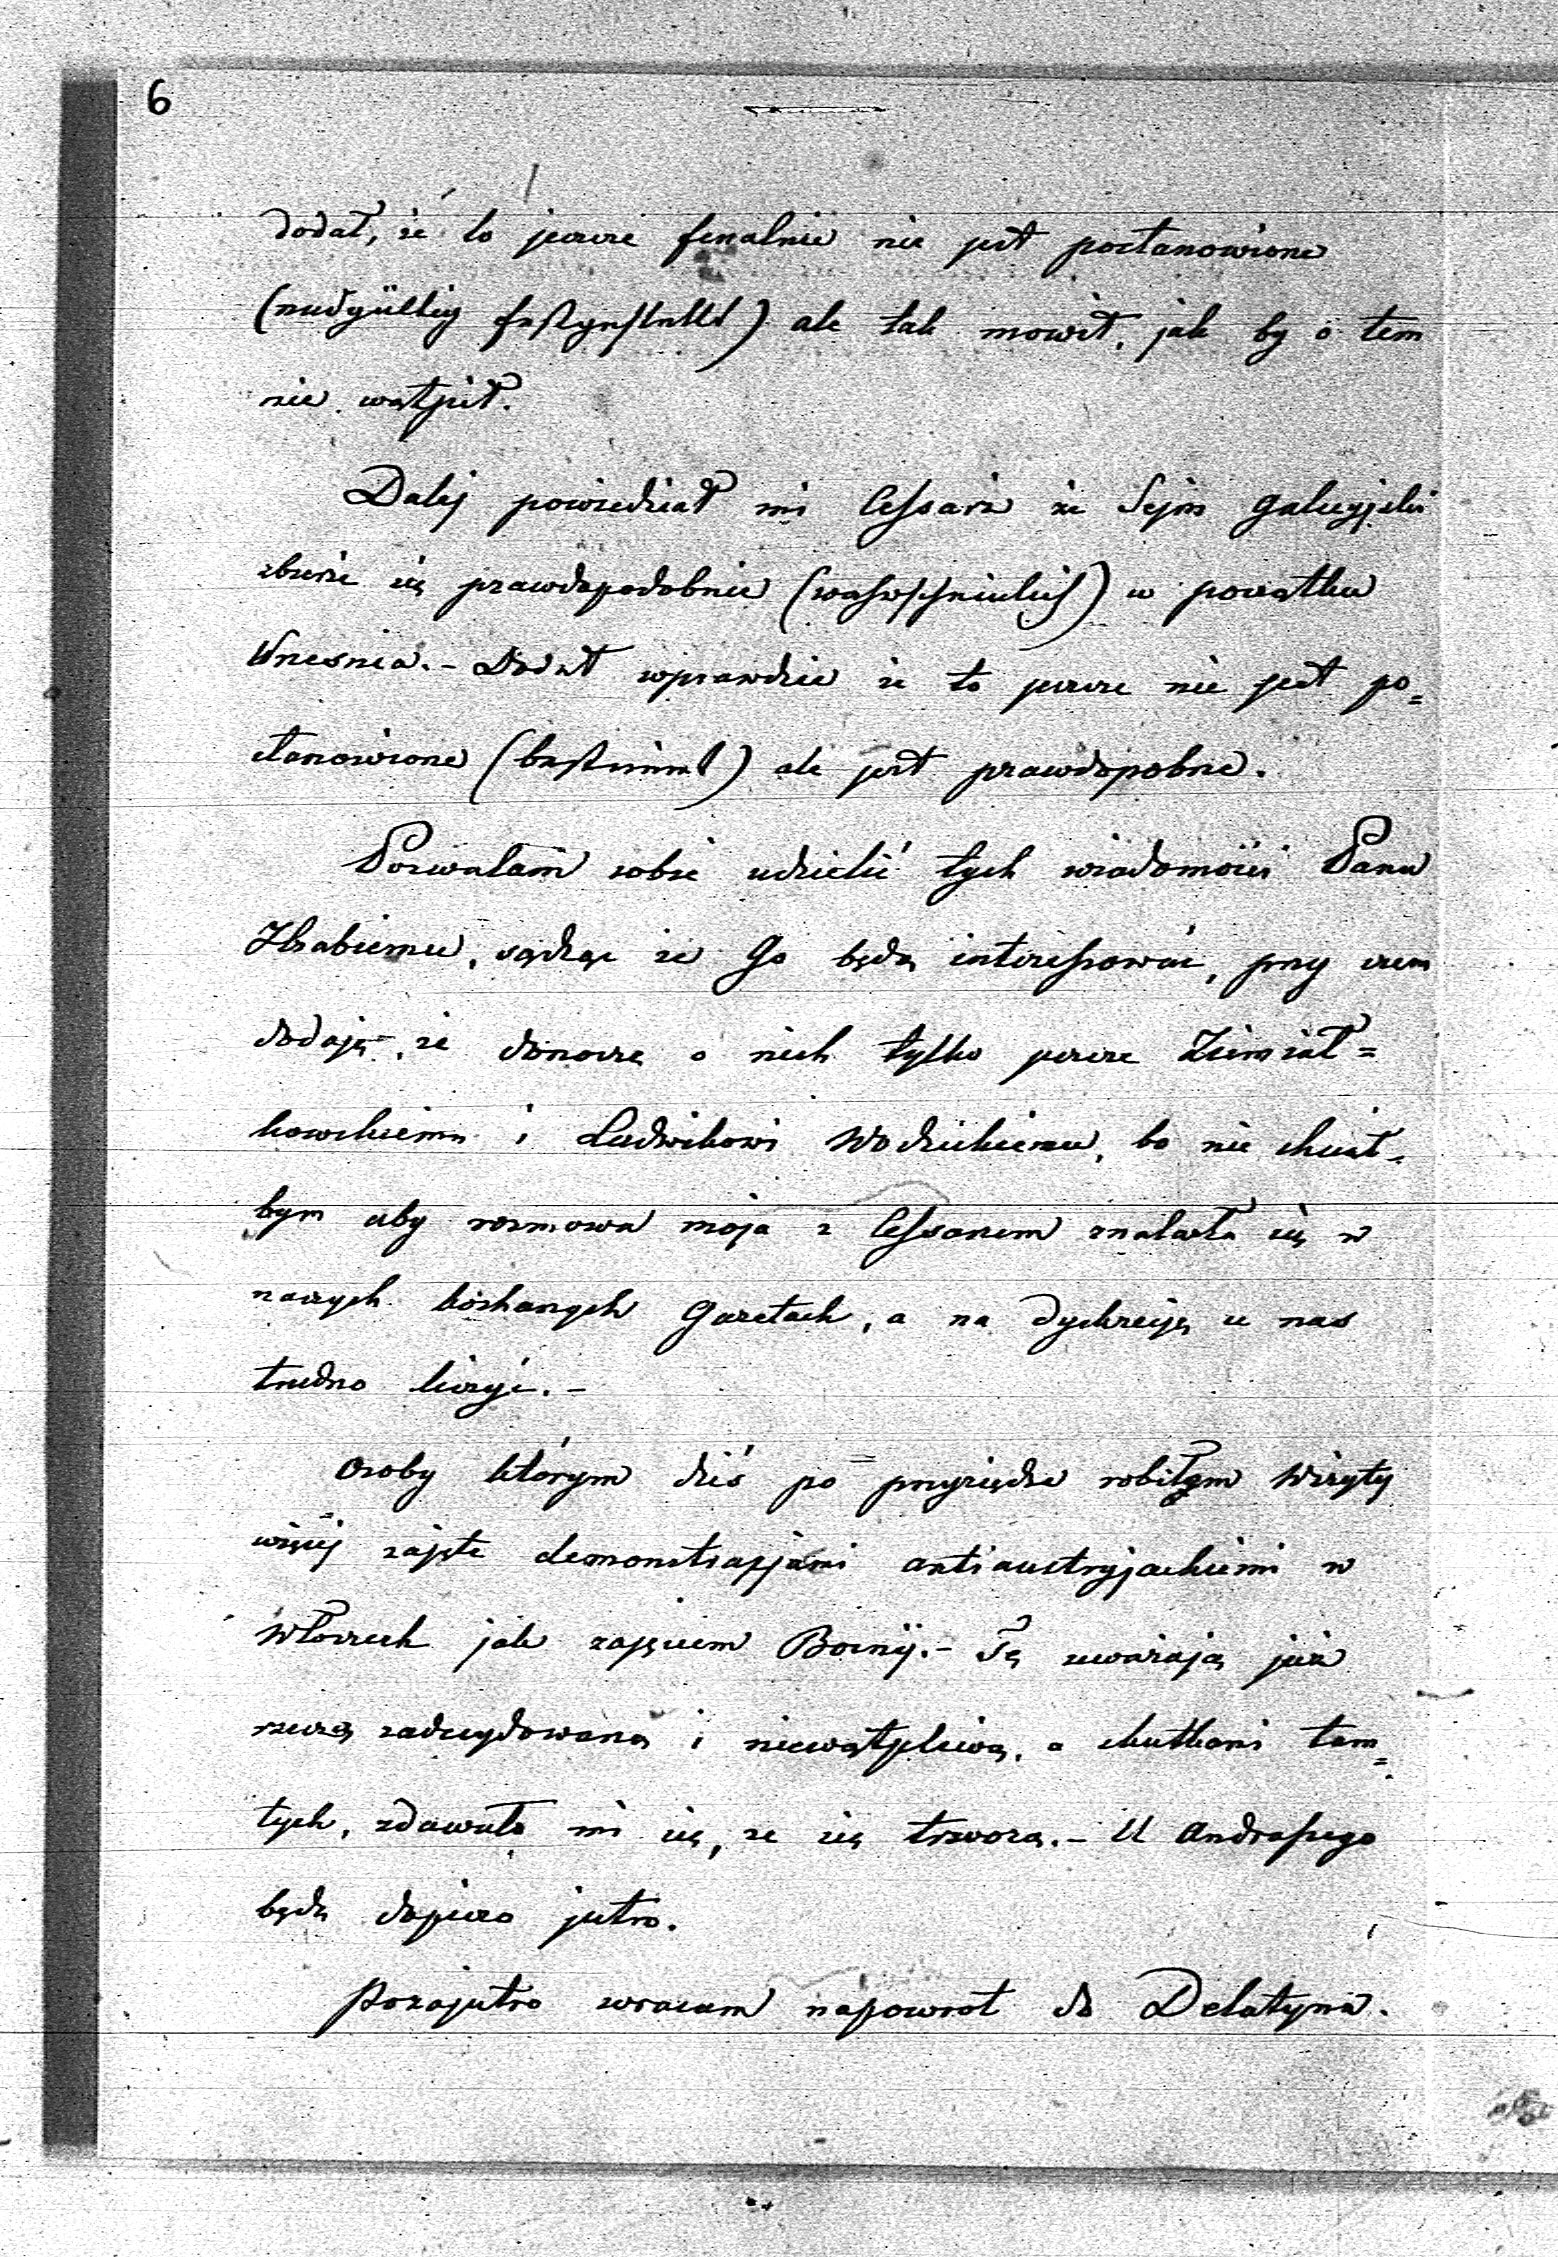 6
dodał, że to jeszcze finalnie nie jest postanowione
(endgültig festgestellt) ale tak mowił, jak by o tem
nie wątpił.
Dalej powiedział mi Cessarz że Sejm galicyjski
zbierze się prawdopodobnie (wahrscheinlich) w początku
Wrzesnia. - Dodał wprawdzie że to jeszcze nie jest po=
stanowione (bestimmt) ale jest prawdopobne.
Pozwalam sobie udzielić tych wiadomości Panu
Hrabiemu, sądząc że Go będą interessować, przy czem
dodaję, że donoszę o nich tylko jeszcze Ziemiał=
kowskiemu i Ludwikowi Wodzickiemu, bo nie chciał=
bym aby rozmowa moja z Cessarzem znalazła się w
naszych kochanych Gazetach, a na dyskrecję u nas
trudno liczyć. -
Osoby którym dziś po przyjeździe robiłem wizyty
więcej zajęte demonstracjami antiaustryjackiemi w
Włoszech jak zajęciem Bosnij. - Tę uważają już
rzeczą zadecydowaną i niewątpliwą, a skutkami tam=
tych, zdawało mi się, że się trwożą. - U Andrassego
będę dopiero jutro.
Pozajutro wracam napowrot do Delatyna.